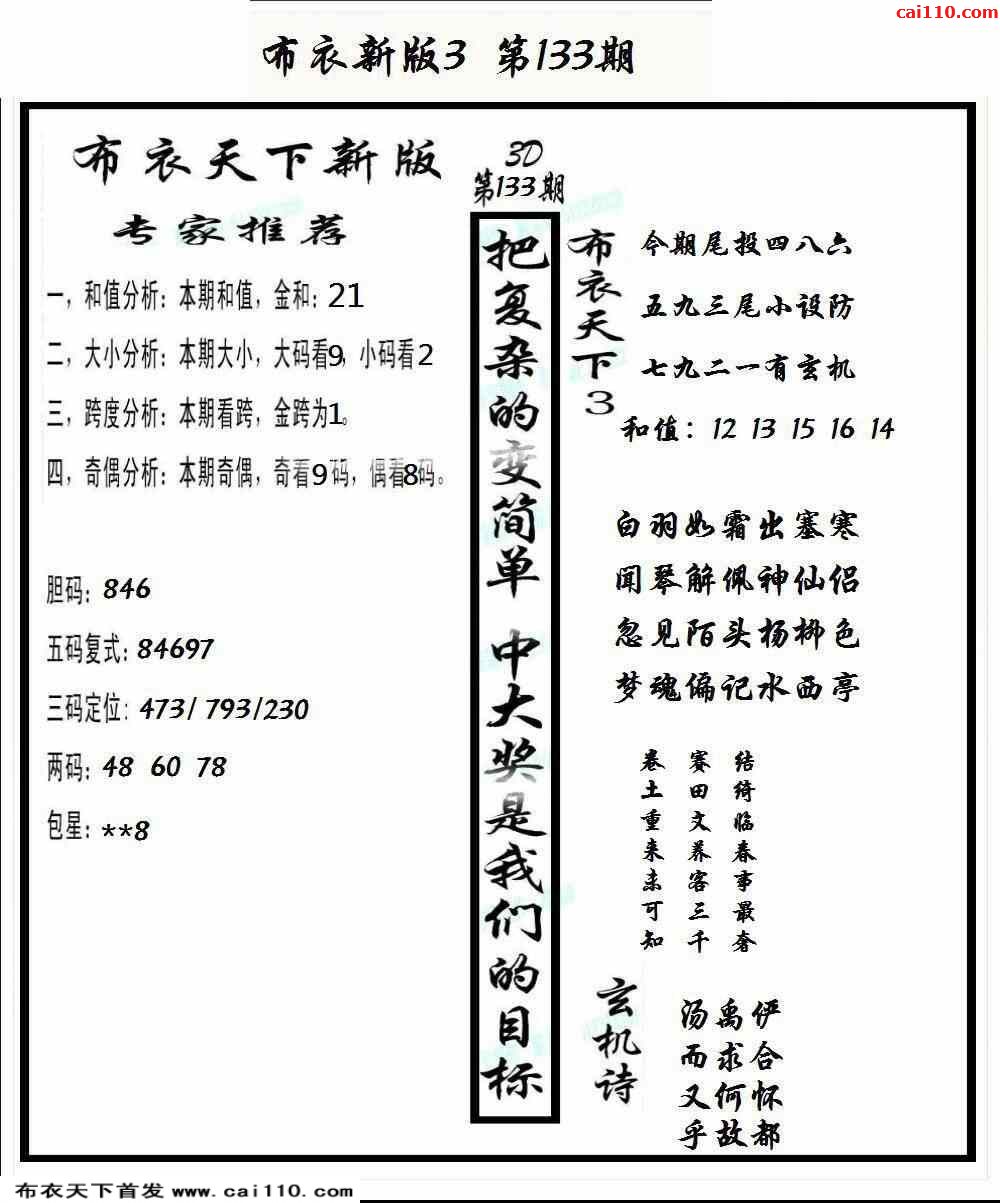 cai110.com
布衣新版3 第133期
布衣天下新版
专家推荐
一，和值分析：本期和值，金和：21
二，大小分析：本期大小，大码看9，小码看2
三，跨度分析：本期看跨，金跨为1。
四，奇偶分析：本期奇偶，奇看9码，偶看8码。
胆码：846
五码复式：84697
三码定位：473/ 793/230
两码：48 60 78
包星：**8
3D
第133期
把复杂的变简单 中大奖是我们的目标
布衣天下3
今期尾投四八六
五九三尾小设防
七九二一有玄机
和值：12 13 15 16 14
白羽如霜出塞寒
闻琴解佩神仙侣
忽见陌头杨柳色
梦魂偏记水西亭
结绮临春事最奢
赛田文养客三千
卷土重来未可知
玄机诗
汤禹俨
而求合
又何怀
乎故都
布衣天下首发 www.cai110.com